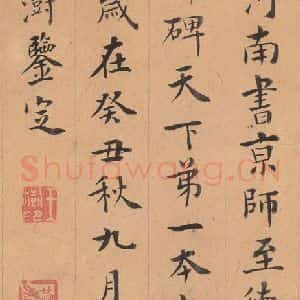 河南書京師至
碑天下弟一本
歲在癸丑秋九月
澍鑒定
Shufawang.CN